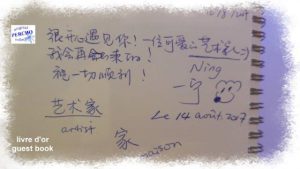 PERCHO
很开心遇见你！一位可爱的艺术家(:)
我会再回来的！
祝一切顺利！
Ning
一宁
艺术家
artist
家
maison
Le 14 août 2017
livre d'or
guest book